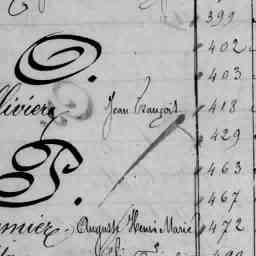 399
O.
402
403
Jean François 418
429
P.
463
467
Auguste Henri Marie 472
490